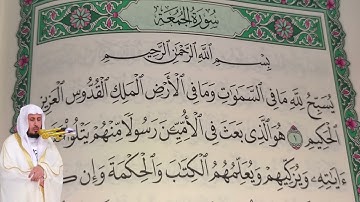 سُورَةُ الْجُمُعَةِ
بِسْمِ اللَّهِ الرَّحْمَٰنِ الرَّحِيمِ
يُسَبِّحُ لِلَّهِ مَا فِي السَّمَاوَاتِ وَمَا فِي الْأَرْضِ الْمَلِكِ الْقُدُّوسِ الْعَزِيزِ
الْحَكِيمِ ۝ هُوَ الَّذِي بَعَثَ فِي الْأُمِّيِّينَ رَسُولًا مِّنْهُمْ يَتْلُوا
ءَايَاتِهِ وَيُزَكِّيهِمْ وَيُعَلِّمُهُمُ الْكِتَابَ وَالْحِكْمَةَ وَإِن